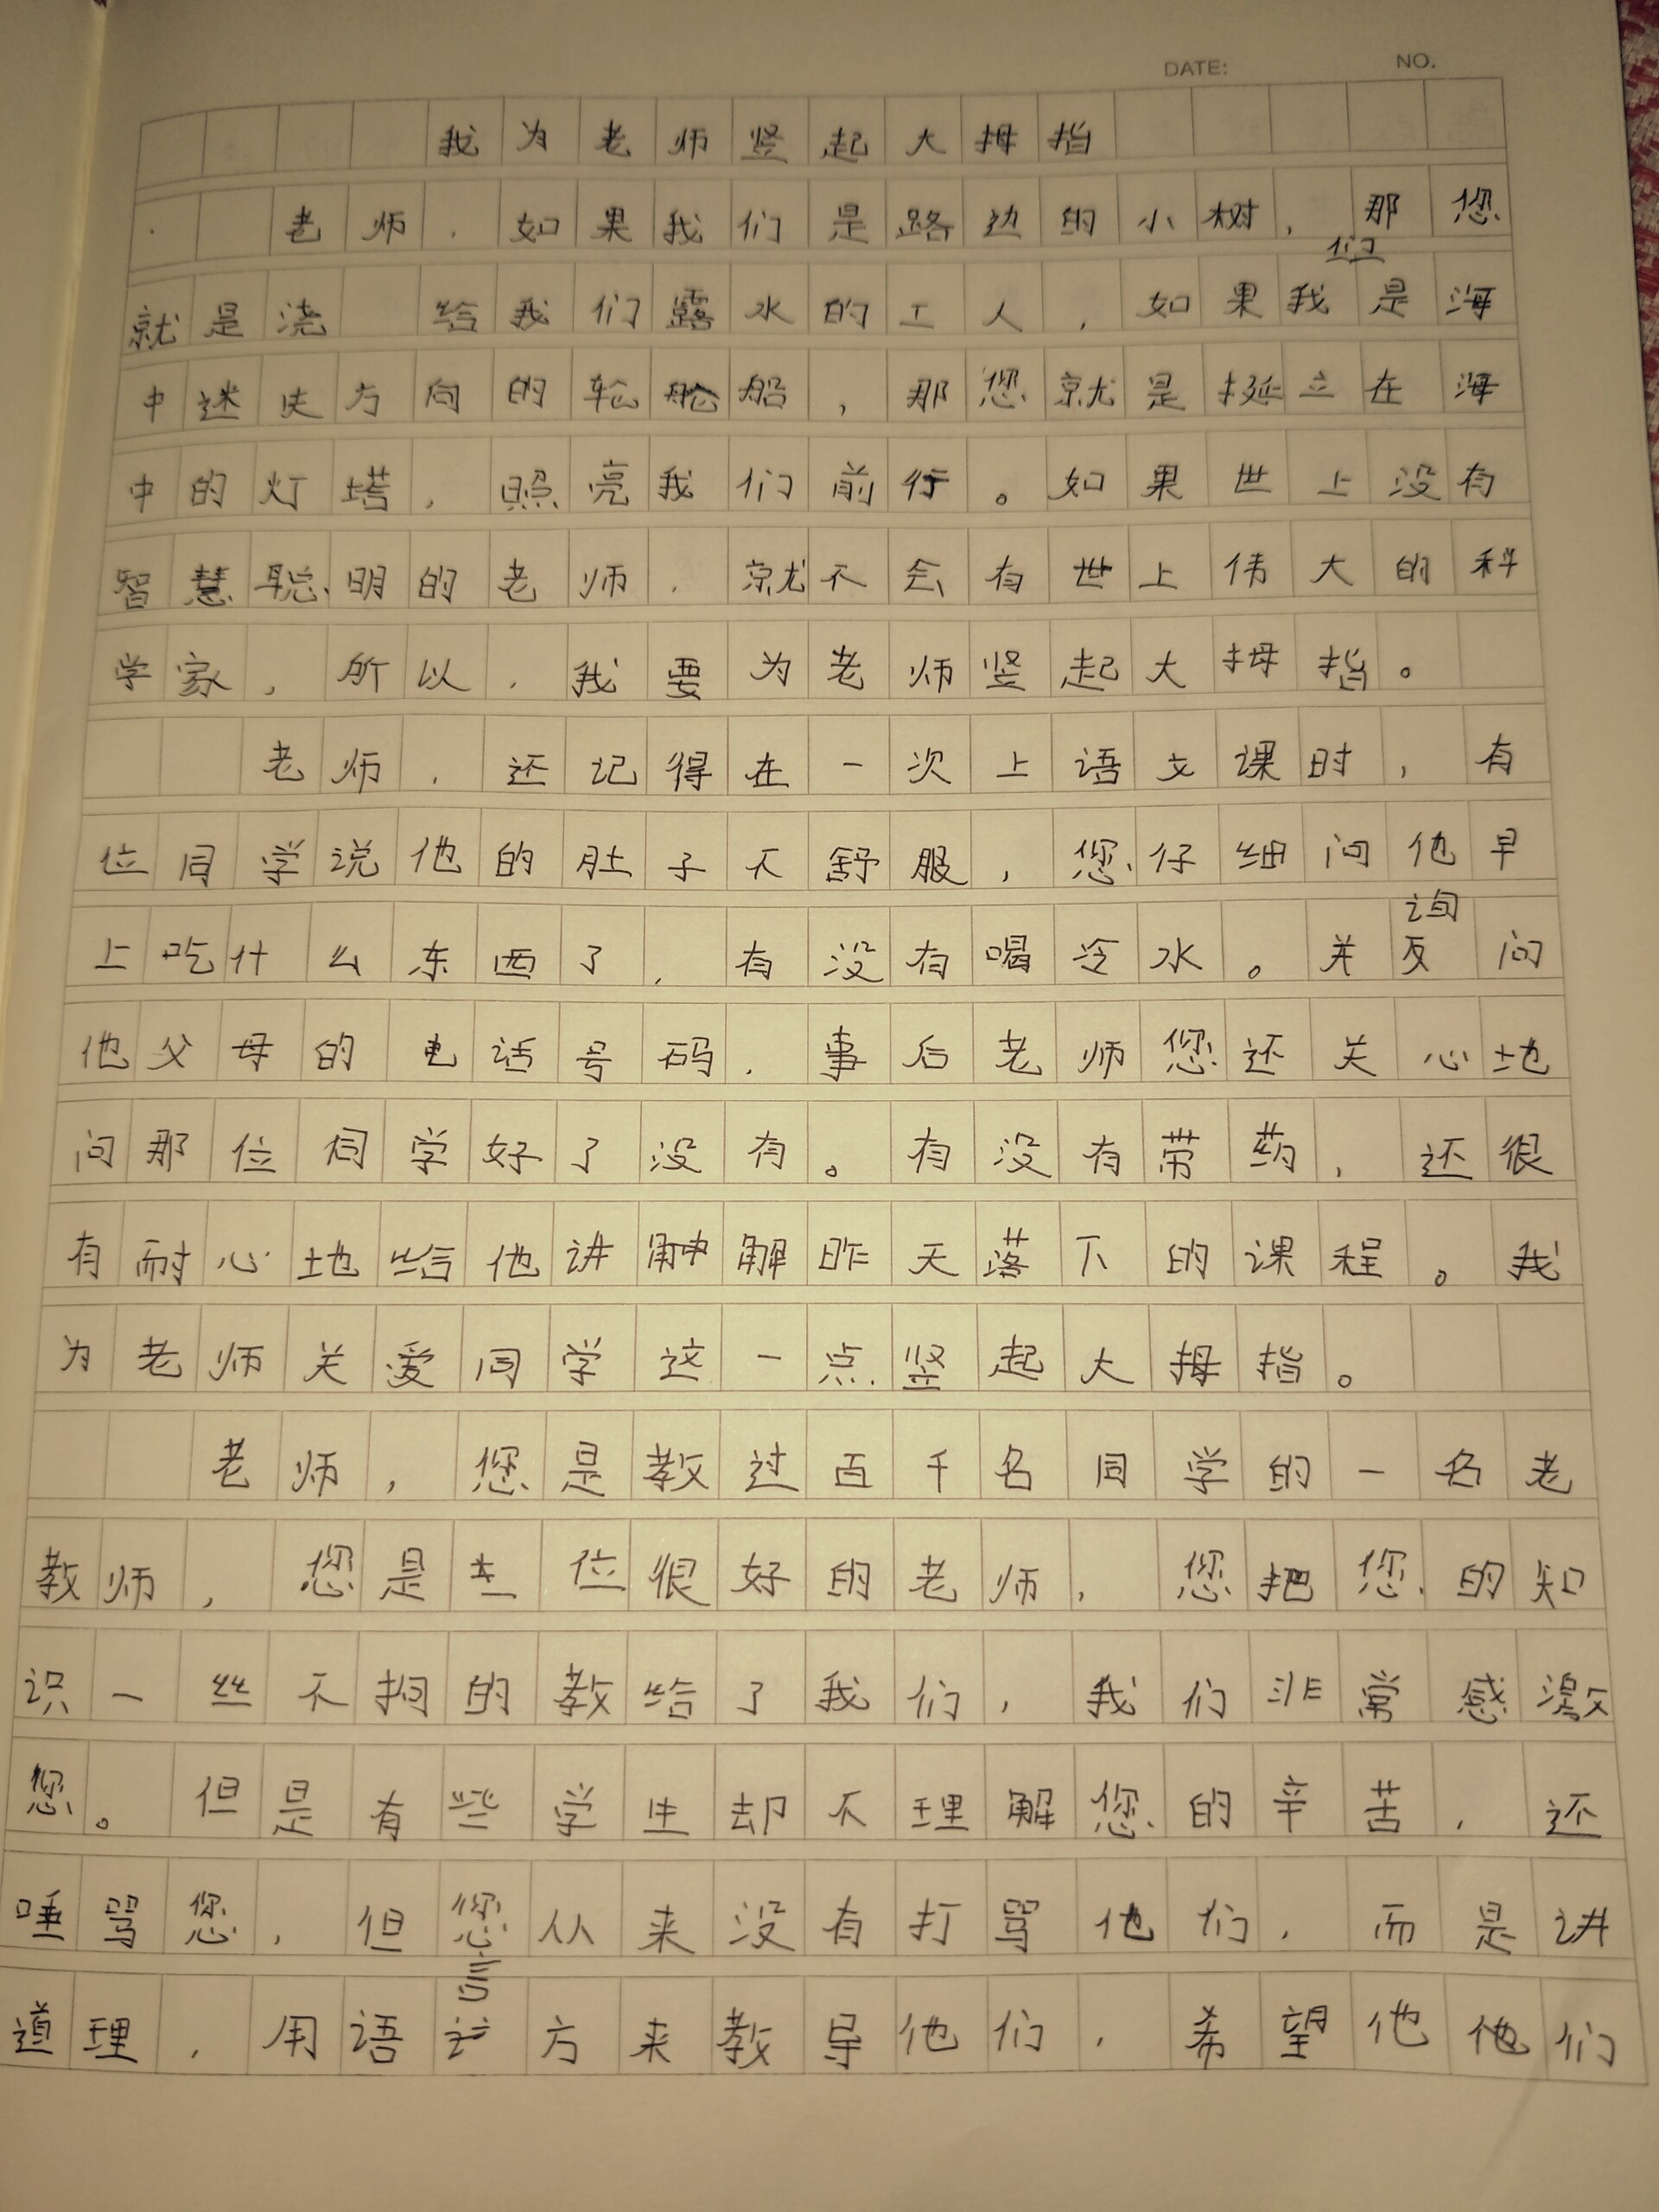 DATE: NO.
我为老师竖起大拇指
老师，如果我们是路边的小树，那您
就是浇给我们露水的工人，如果我们是海
中迷失方向的轮船，那您就是挺立在海
中的灯塔，照亮我们前行。如果世上没有
智慧聪明的老师，就不会有世上伟大的科
学家，所以，我要为老师竖起大拇指。
老师，还记得在一次上语文课时，有
位同学说他的肚子不舒服，您仔细问他早
上吃什么东西了，有没有喝冷水。并询问
他父母的电话号码，事后老师您还关心地
问那位同学好了没有。有没有带药，还很
有耐心地给他讲解昨天落下的课程。我
为老师关爱同学这一点竖起大拇指。
老师，您是教过百千名同学的一名老
教师，您是位很好的老师，您把您的知
识一丝不拘的教给了我们，我们非常感激
您。但是有些学生却不理解您的辛苦，还
唾骂您，但您从来没有打骂他们，而是讲
道理，用语言方来教导他们，希望他他们